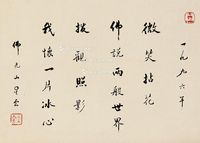 一九九六年
微笑拈花
佛說兩般世界
撥觀照影
我懷一片冰心
佛光山星雲